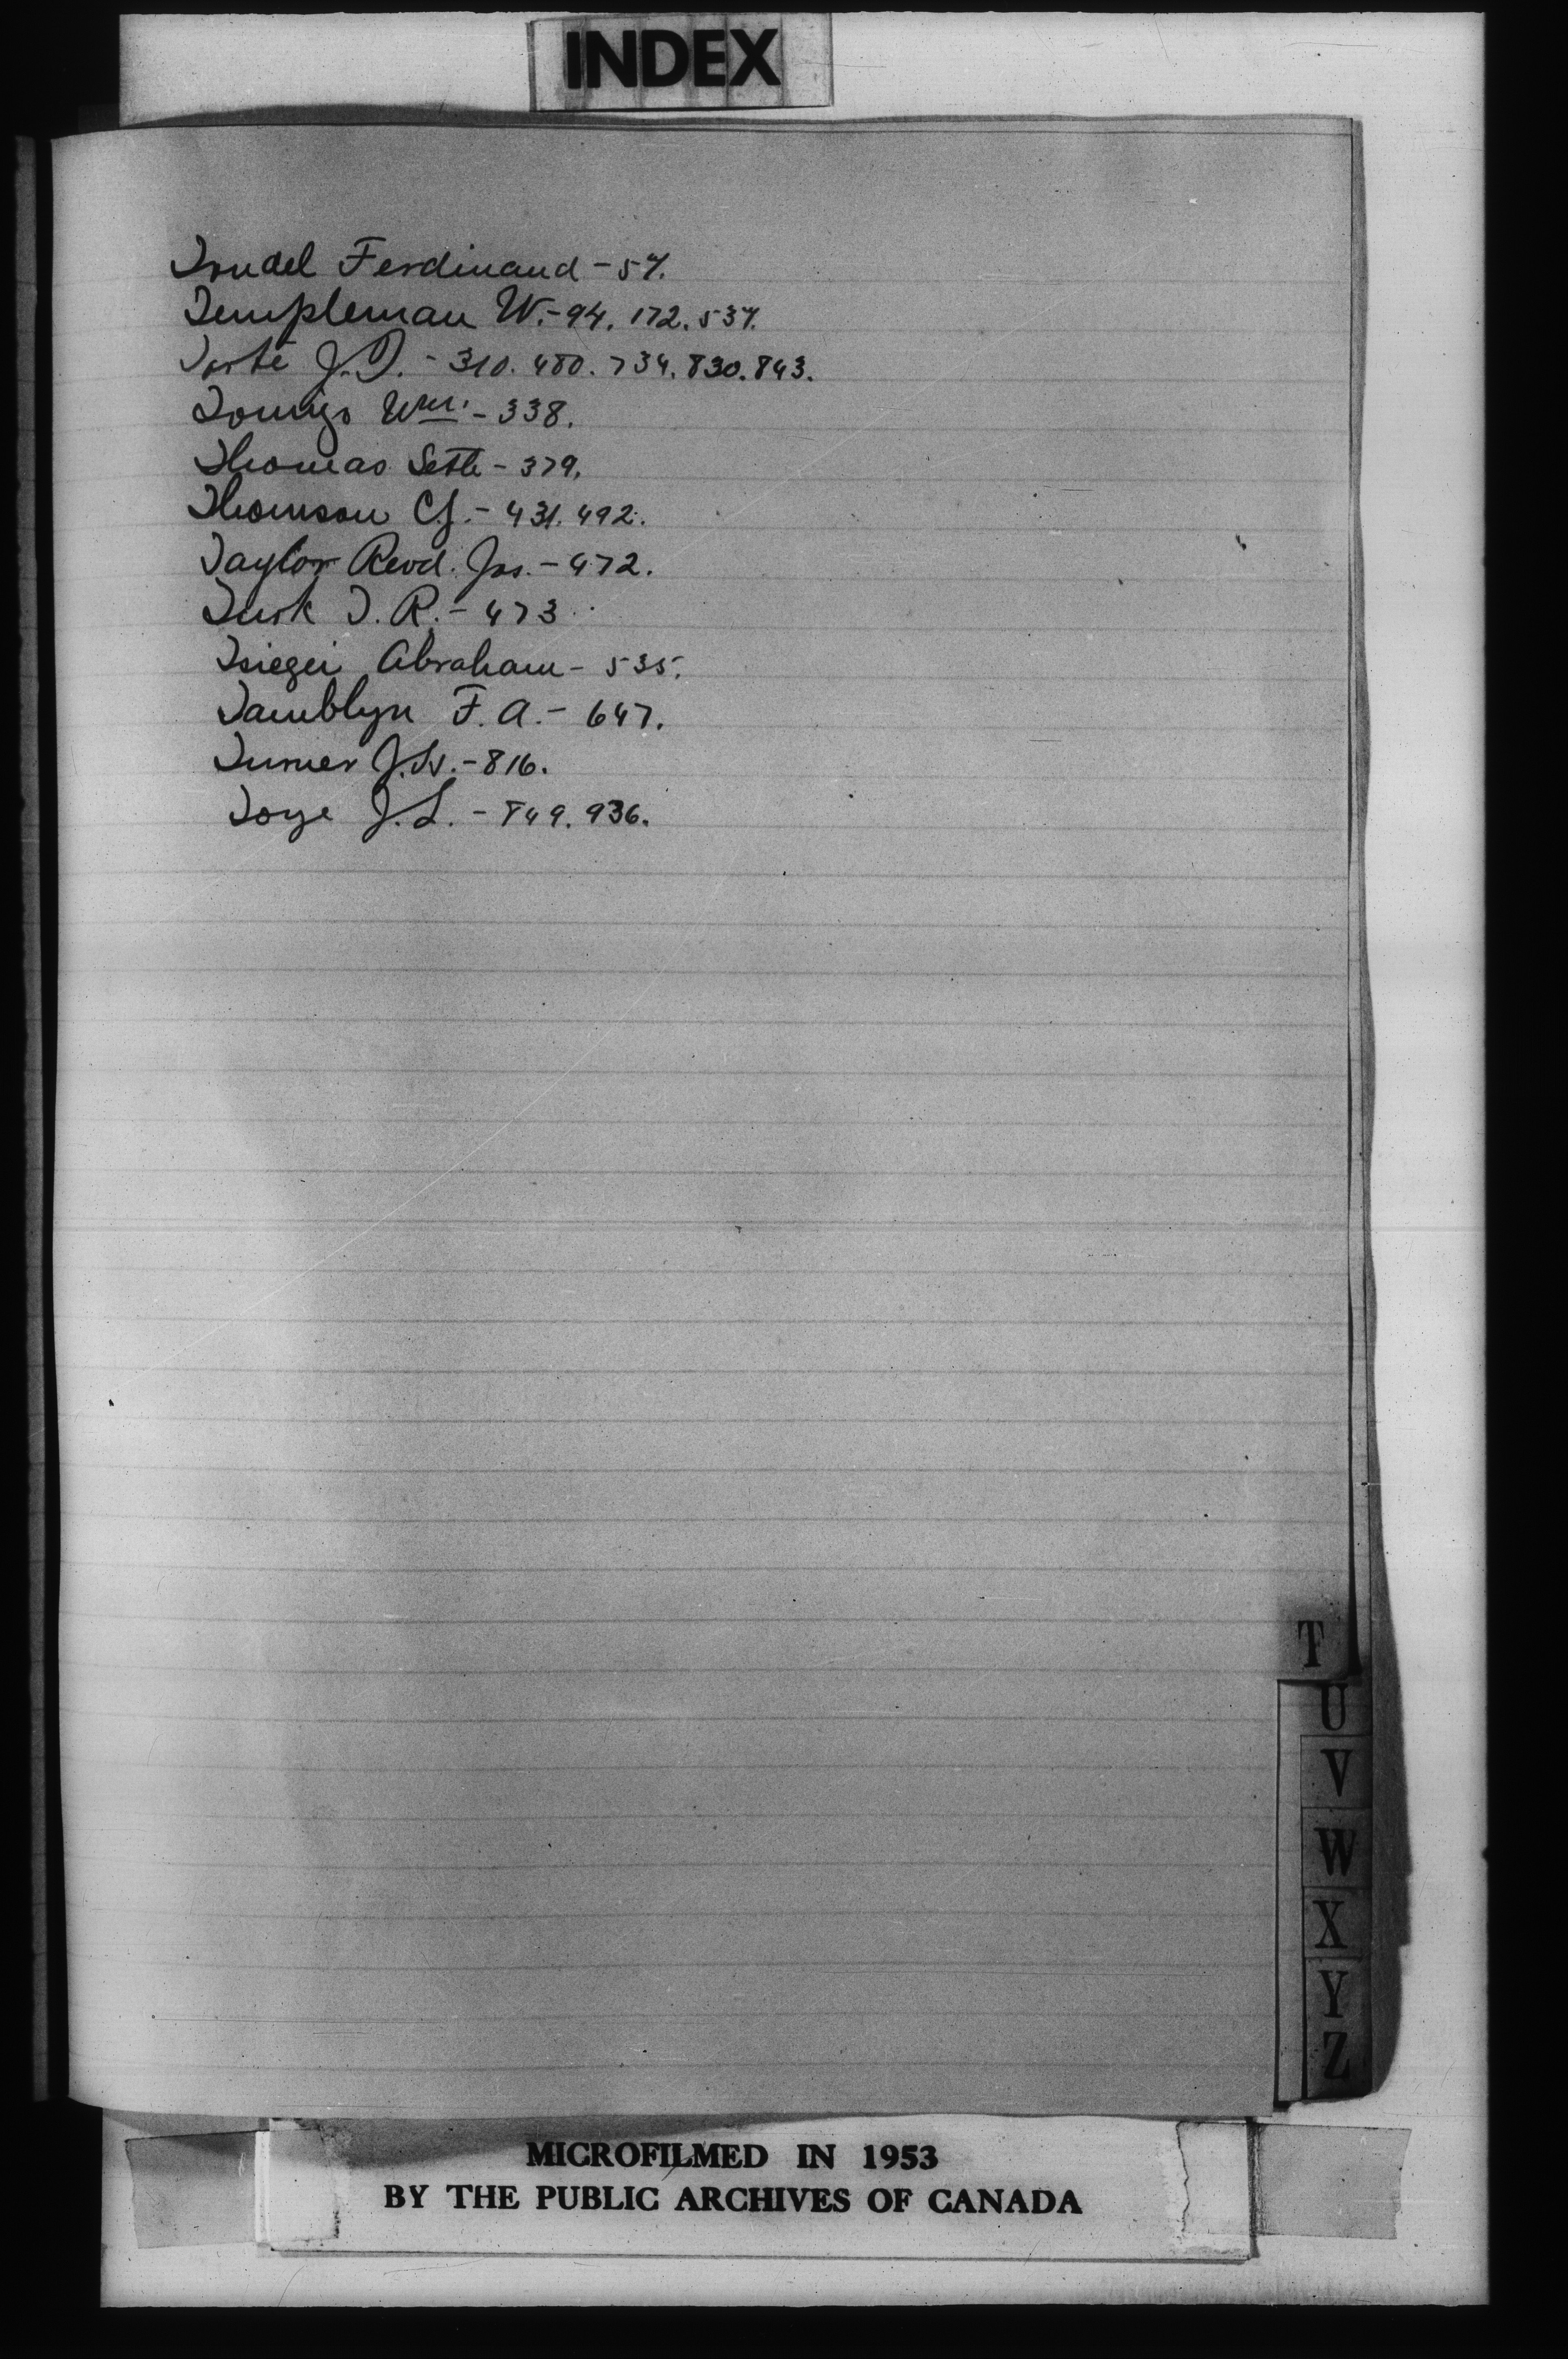 INDEX
Trudel Ferdinand - 57.
Templeman W. - 94. 172. 537.
Tarte J.I. - 310. 480. 734. 830. 843.
Wm. - 338.
Thomas Seth - 379.
Thomson C.J. - 431. 492.
Taylor Revd. Jas. - 472.
Turk I. R. - 473
Tsiegei Abraham - 535.
Tamblyn F. A. - 647.
Turner J. - 816.
Toye J. L. - 849. 936.
T
U
V
W
X
Y
Z
MICROFILMED IN 1953
BY THE PUBLIC ARCHIVES OF CANADA